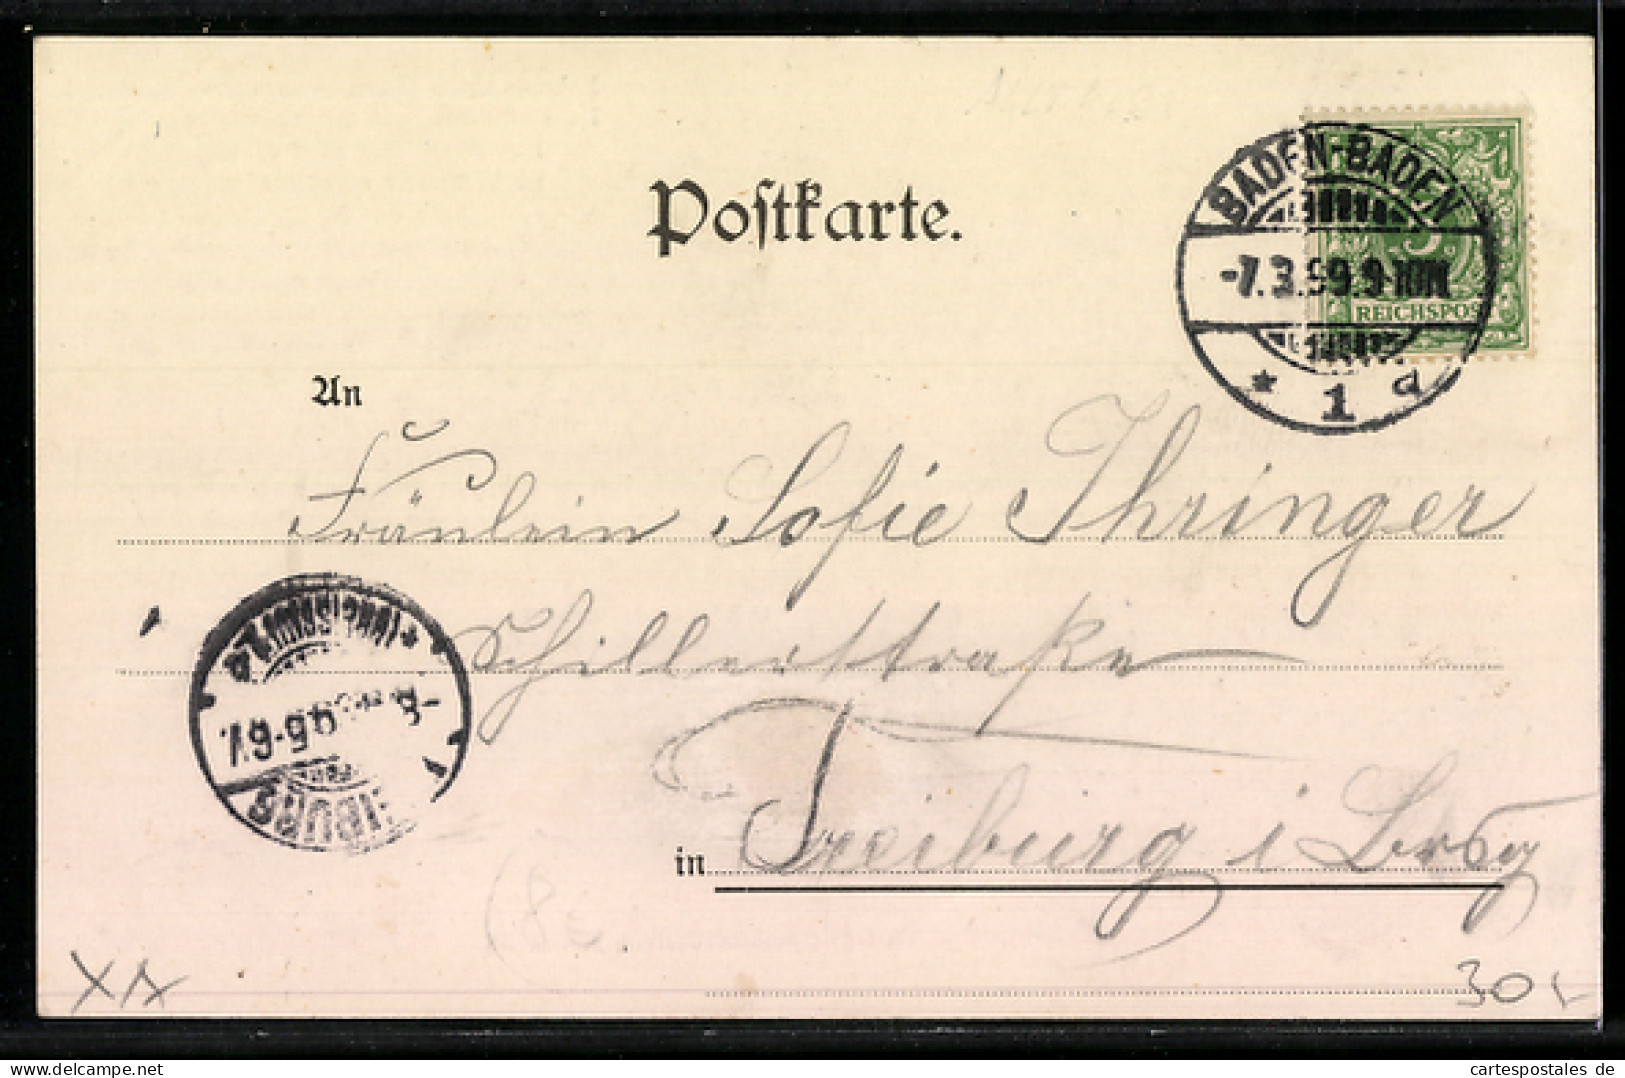 Postkarte.
BADEN-BADEN
-7.3.99.9-10N.
* 1 d
REICHSPOST
An
Fräulein Sofie Ihringer
Schillerstraße
(BREISGAU)
5-6V.
in Freiburg i Brsg
XA
30
www.cartespostales.de